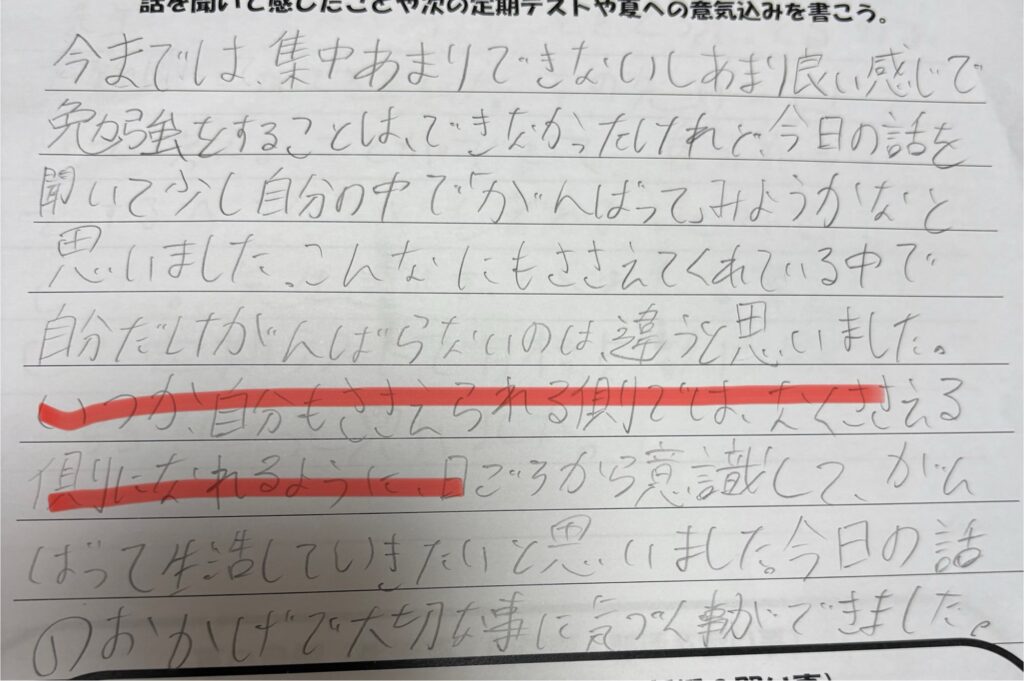 話を聞いて感じたことや次の定期テストや夏への意気込みを書こう。
今までは、集中あまりできないしあまり良い感じで
勉強をすることは、できなかったけれど、今日の話を
聞いて少し自分の中で「がんばって」みようかなと
思いました。こんなにもささえてくれている中で
自分だけがんばらないのは、違うと思いました。
いつか、自分もささえられる側では、なくささえる
側になれるように、日ごろから意識して、がん
ばって生活していきたいと思いました。今日の話
のおかげで大切な事に気づく事ができました。